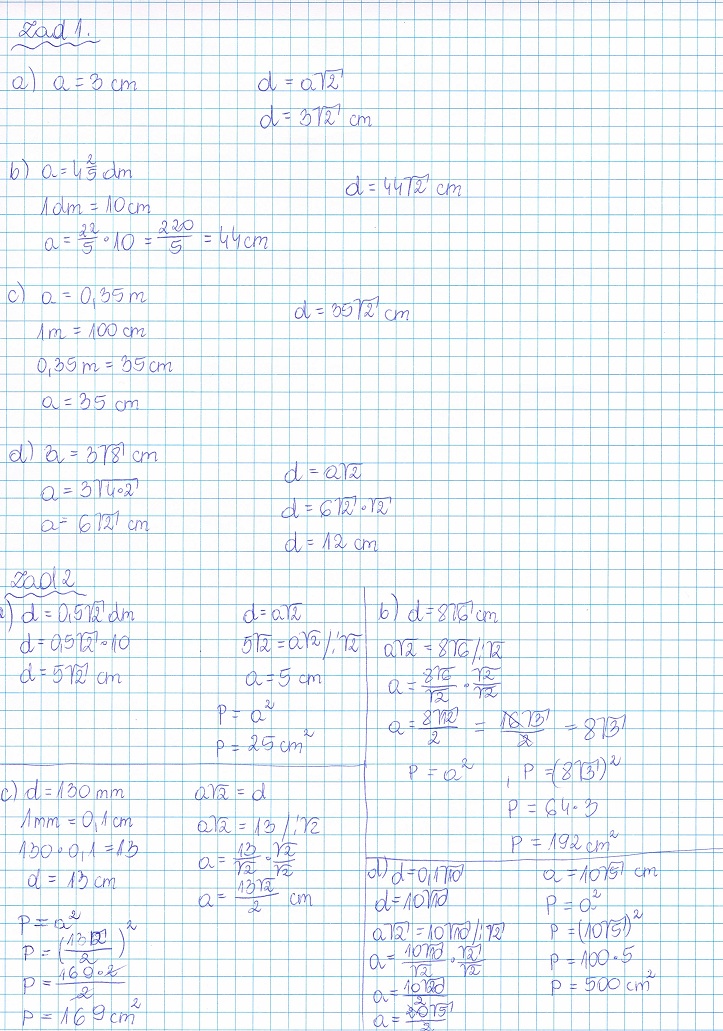 Zad 1.
a) a = 3 cm
d = a√2
d = 3√2 cm
b) a = 4 2/5 dm
1dm = 10cm
a = 22/5 · 10 = 220/5 = 44cm
d = 44√2 cm
c) a = 0,35 m
1m = 100 cm
0,35 m = 35 cm
a = 35 cm
d = 35√2 cm
d) a = 3√8 cm
a = 3√4·2
a = 6√2 cm
d = a√2
d = 6√2 · √2
d = 12 cm
Zad 2
a) d = 0,5√2 dm
d = 0,5√2 · 10
d = 5√2 cm
d = a√2
5√2 = a√2 /:√2
a = 5 cm
P = a²
P = 25 cm²
b) d = 8√6 cm
a√2 = 8√6 /:√2
a = 8√6/√2 · √2/√2
a = 8√12/2 = 16√3/2 = 8√3
P = a² , P = (8√3)²
P = 64·3
P = 192 cm²
c) d = 130 mm
1mm = 0,1 cm
130 · 0,1 = 13
d = 13 cm
a√2 = d
a√2 = 13 /:√2
a = 13/√2 · √2/√2
a = 13√2/2 cm
P = a²
P = (13√2/2)²
P = 169·2/2
P = 169 cm²
d) d = 0,1√10
d = 10√10
a√2 = 10√10 /:√2
a = 10√10/√2 · √2/√2
a = 10√20/2
a = 20√5/2
a = 10√5 cm
P = a²
P = (10√5)²
P = 100·5
P = 500 cm²